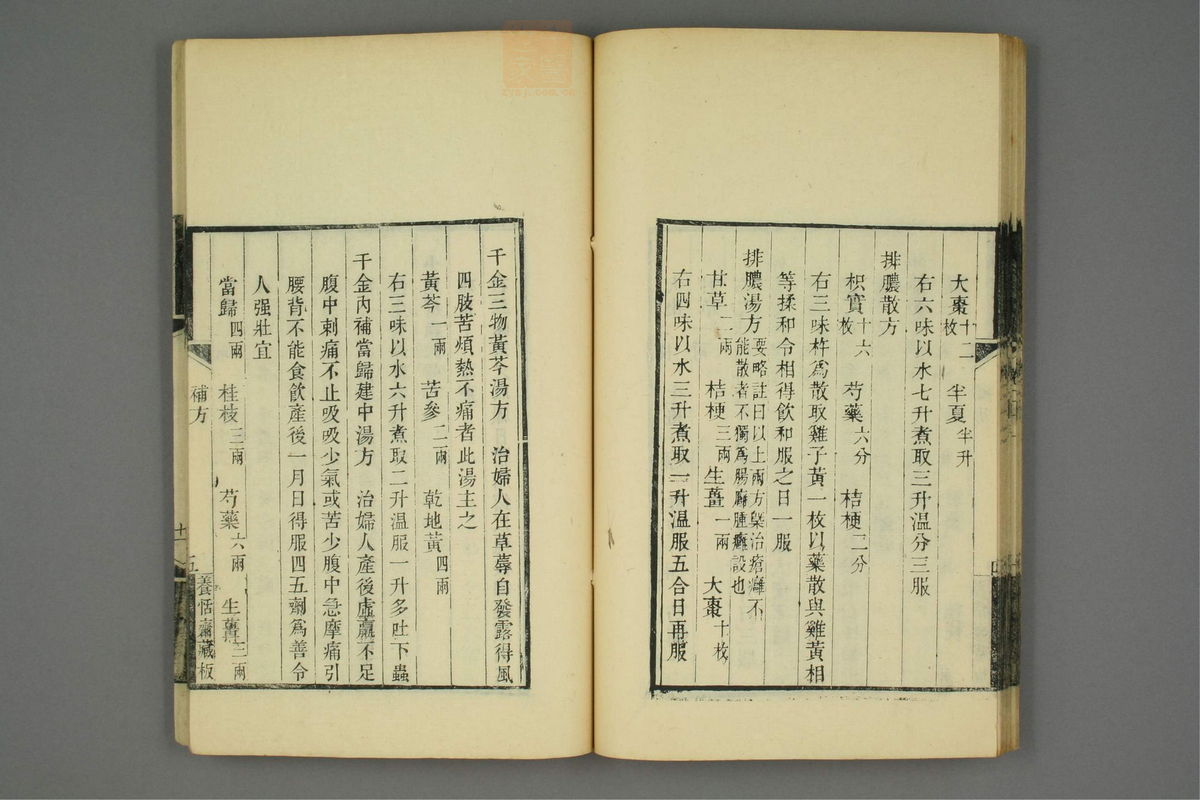 大棗十二枚 半夏半升
右六味以水七升煮取三升温分三服
排膿散方
枳實十六枚 芍藥六分 桔梗二分
右三味杵爲散取雞子黃一枚以藥散與雞黃相
等揉和令相得飲和服之日一服
排膿湯方 要略註曰以上兩方槩治瘡癰不
能散者不獨爲腸癰腫癰設也
甘草二兩 桔梗三兩 生薑一兩 大棗十枚
右四味以水三升煮取一升温服五合日再服
千金三物黃芩湯方 治婦人在草蓐自發露得風
四肢苦煩熱不痛者此湯主之
黃芩一兩 苦參二兩 乾地黃四兩
右三味以水六升煮取二升温服一升多吐下蟲
千金內補當歸建中湯方 治婦人產後虛羸不足
腹中刺痛不止吸吸少氣或苦少腹中急摩痛引
腰背不能食飲產後一月日得服四五劑爲善令
人强壯宜
當歸四兩 桂枝三兩 芍藥六兩 生薑三兩
補方
十一
五
養恬齋藏板